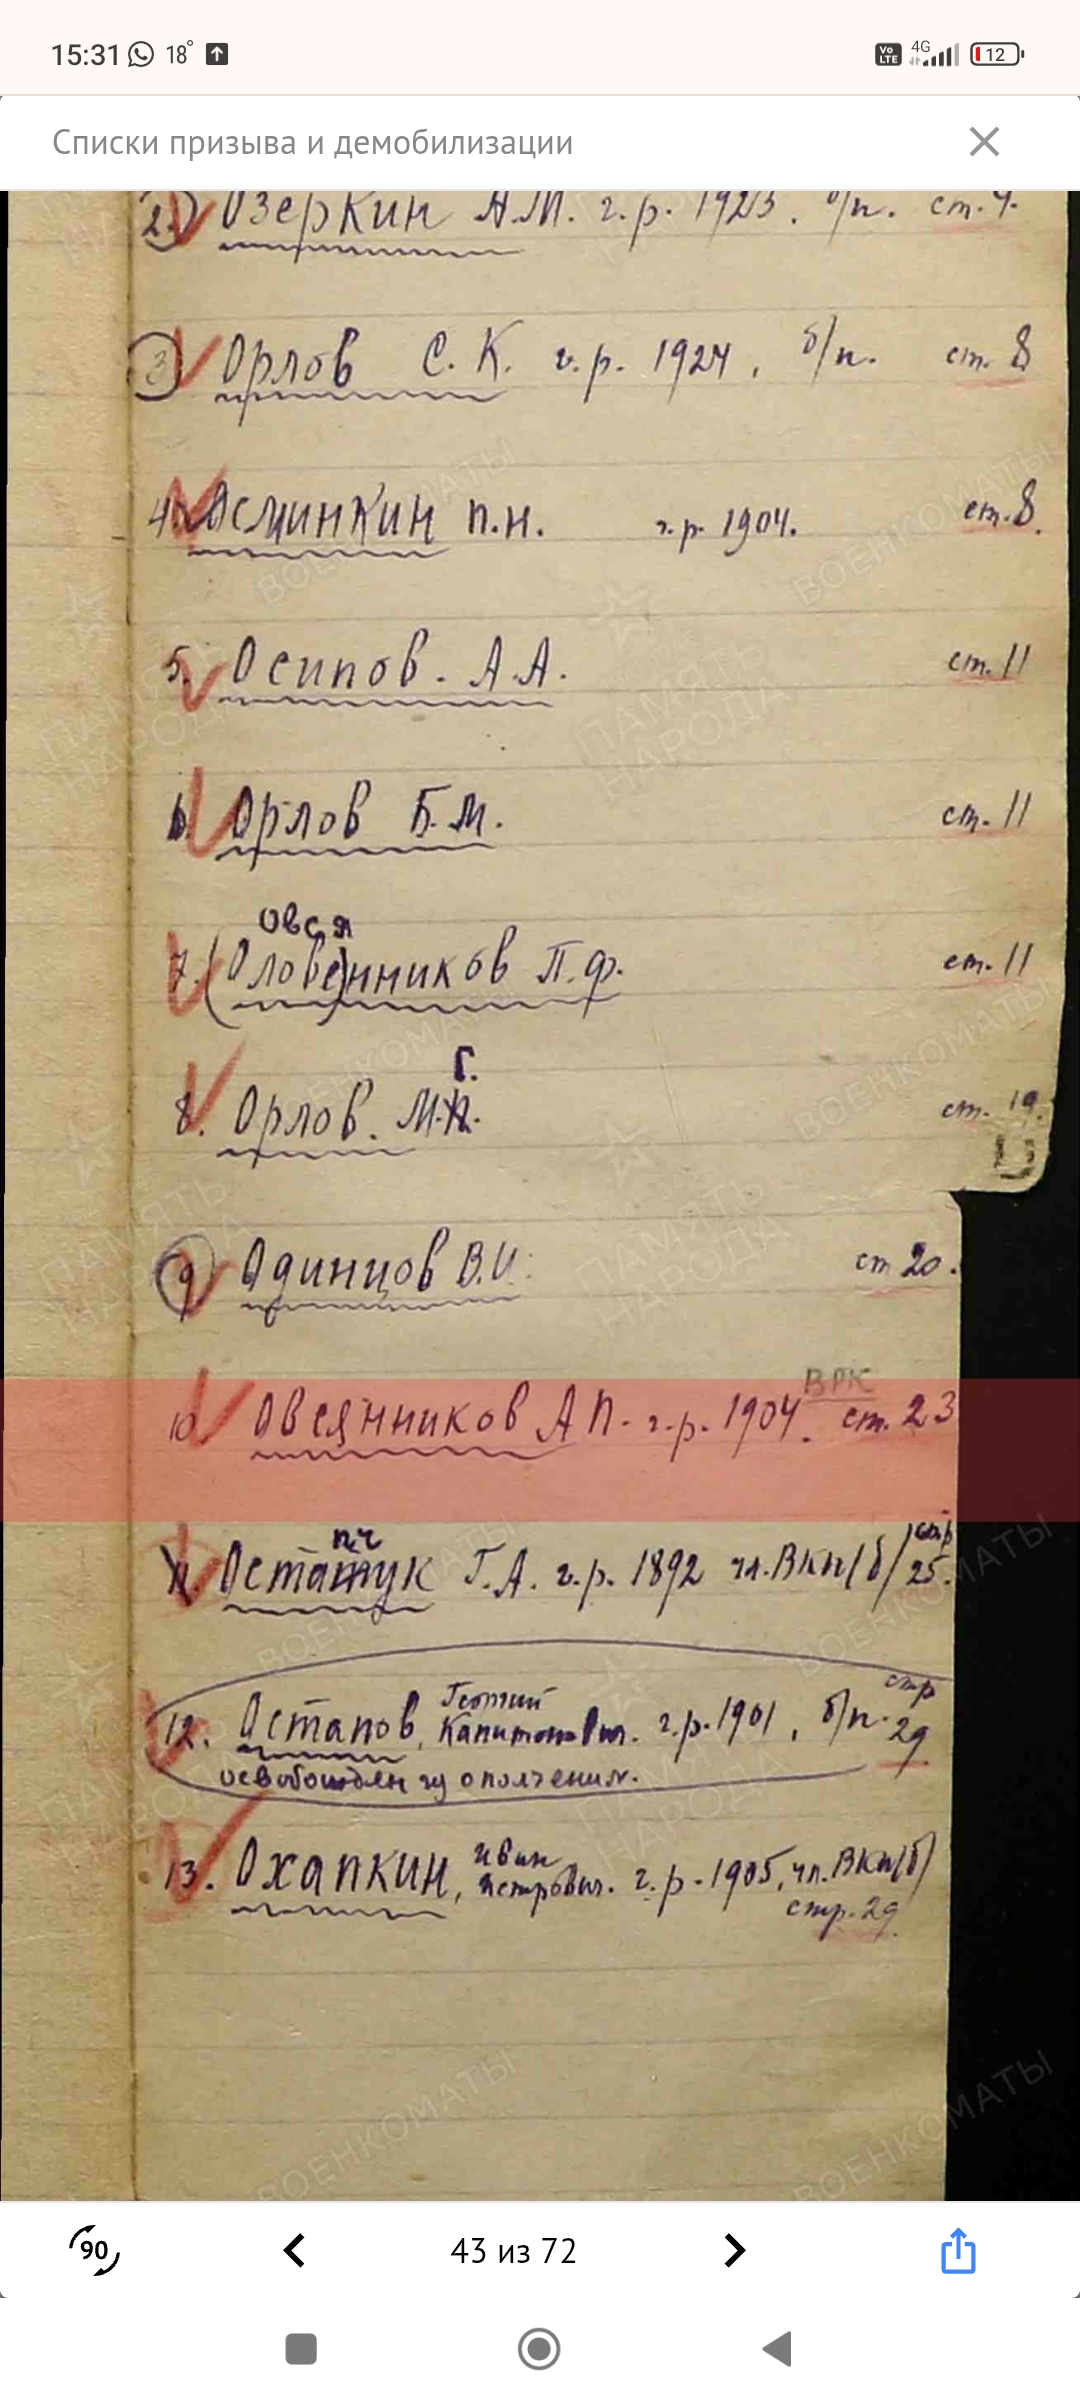 15:31 18° Vo LTE 4G 12
Списки призыва и демобилизации
2. Озеркин А.М. г.р. 1923. б/п. ст. 4.
3 Орлов С.К. г.р. 1924, б/п. ст. 8
4. П.Н. г.р. 1904. ст. 8.
5. Осипов. А.А. ст. 11
6. Орлов Б.М. ст. 11
овся
7. (Олове)нников П.Ф. ст. 11
Г.
8. Орлов. М. ст. 19.
9 Одинцов В.И. ст 20.
ВРК
10 Овсянников А П. г.р. 1904. ст. 23
пч стр
11. Остатук Г.А. г.р. 1892 чл. ВКП(б) 25.
Георгий стр
12. Остапов, Капитонович. г.р. 1901, б/п. 29
освобожден из ополчения.
Иван
13. Охапкин, Петрович. г.р. 1905, чл. ВКП(б)
стр. 29
ПАМЯТЬ НАРОДА
ВОЕНКОМАТЫ
90 43 из 72